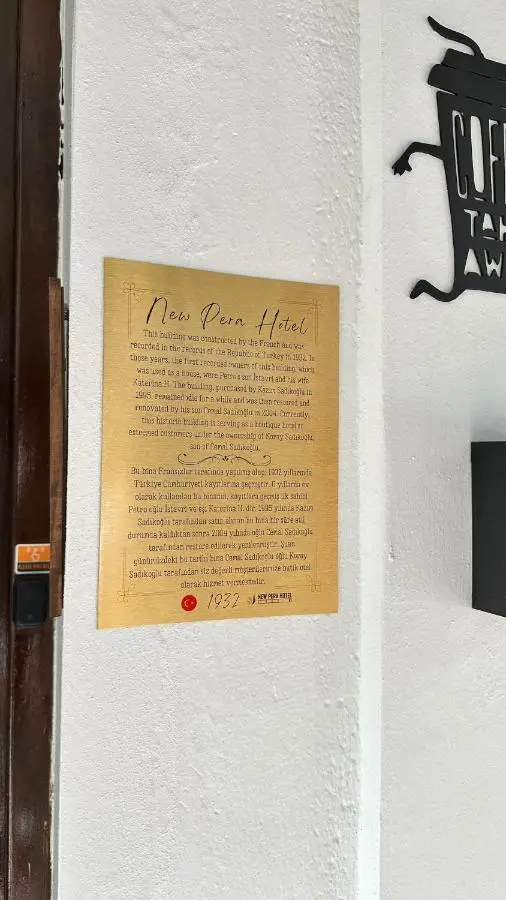 New Pera Hotel
This building was constructed by the French and was
recorded in the records of the Republic of Turkey in 1932. In
those years, the first recorded owners of this building, which
was used as a house, were Petro's son Istavri and his wife
Katerina H. The building, purchased by Kazım Sadıkoğlu in
1995, remained idle for a while and was then restored and
renovated by his son Cemal Sadıkoğlu in 2004. Currently,
this historic building is serving as a boutique hotel to
esteemed customers under the ownership of Koray Sadıkoğlu,
son of Cemal Sadıkoğlu.
Bu bina Fransızlar tarafından yapılmış olup, 1932 yıllarında
Türkiye Cumhuriyeti kayıtlarına geçmiştir. O yıllarda ev
olarak kullanılan bu binanın, kayıtlara geçmiş ilk sahibi
Petro oğlu İstavri ve eşi Katerina H. dir. 1995 yılında Kazım
Sadıkoğlu tarafından satın alınan bu bina bir süre atıl
durumda kaldıktan sonra 2004 yılında oğlu Cemal Sadıkoğlu
tarafından restore edilerek yenilenmiştir. Şuan
günümüzdeki bu tarihi bina Cemal Sadıkoğlu oğlu Koray
Sadıkoğlu tarafından siz değerli müşterilerimize butik otel
olarak hizmet vermektedir.
1932 NEW PERA HOTEL
COF
TA
AW